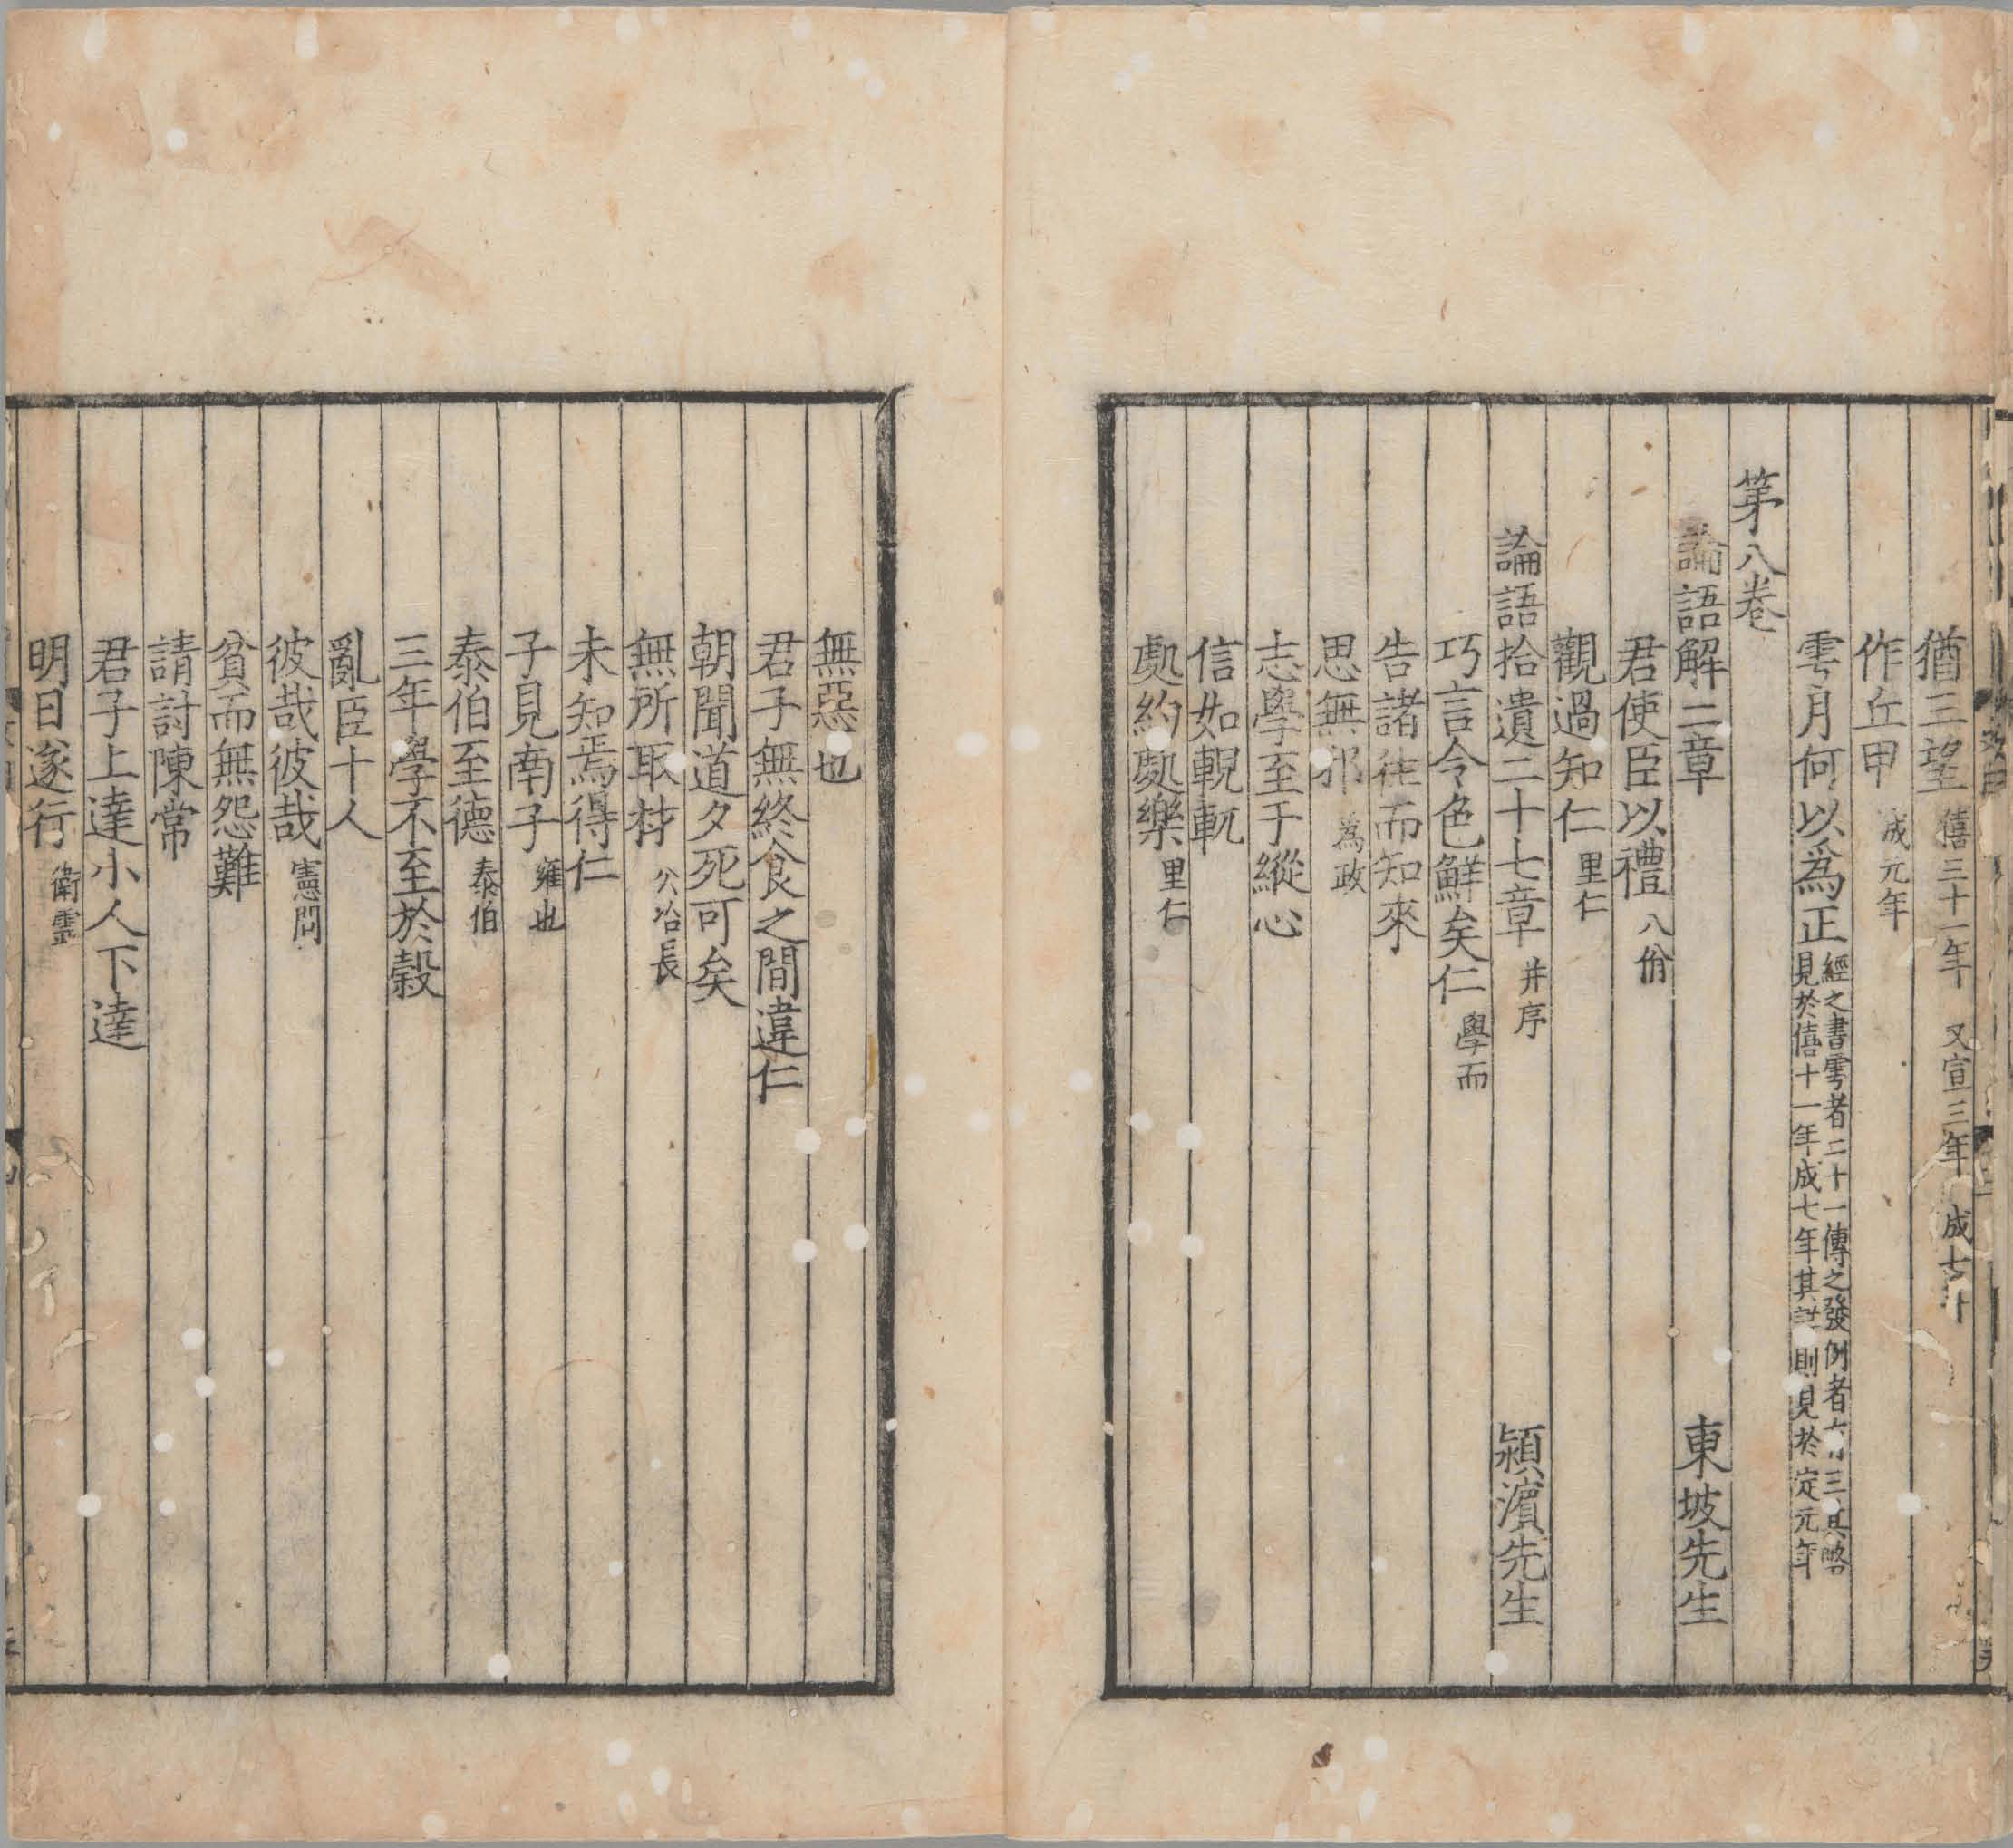 猶三望 僖三十一年 又宣三年 成七十
作丘甲 成元年
雩月何以爲正 經之書雩者二十一傳之發例者 三其略
見於僖十一年成七年其 則見於定元年
第八卷
論語解二章 東坡先生
君使臣以禮 八佾
觀過知仁 里仁
論語拾遺二十七章 并序 潁濵先生
巧言令色鮮矣仁 學而
告諸徃而知來
思無邪 為政
志學至于縱心
信如輗軏
處約處樂 里仁
無惡也
君子無終食之間違仁
朝聞道夕死可矣
無所取材 公冶長
未知焉得仁
子見南子 雍也
泰伯至德 泰伯
三年學不至於穀
亂臣十人
彼哉彼哉 憲問
貧而無怨難
請討陳常
君子上達小人下達
明日遂行 衛霊